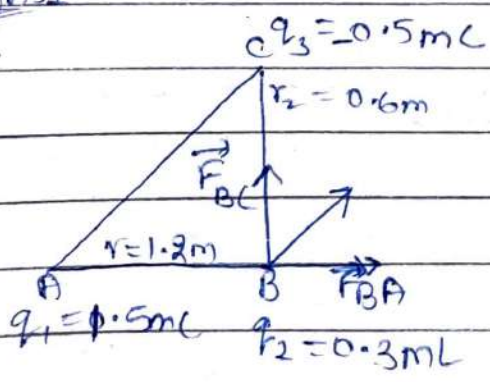 C q₃ = -0.5mC
r₂ = 0.6m
F⃗ BC
r=1.2m
A B F⃗ BA
q₁ = 1.5mC q₂ = 0.3mC